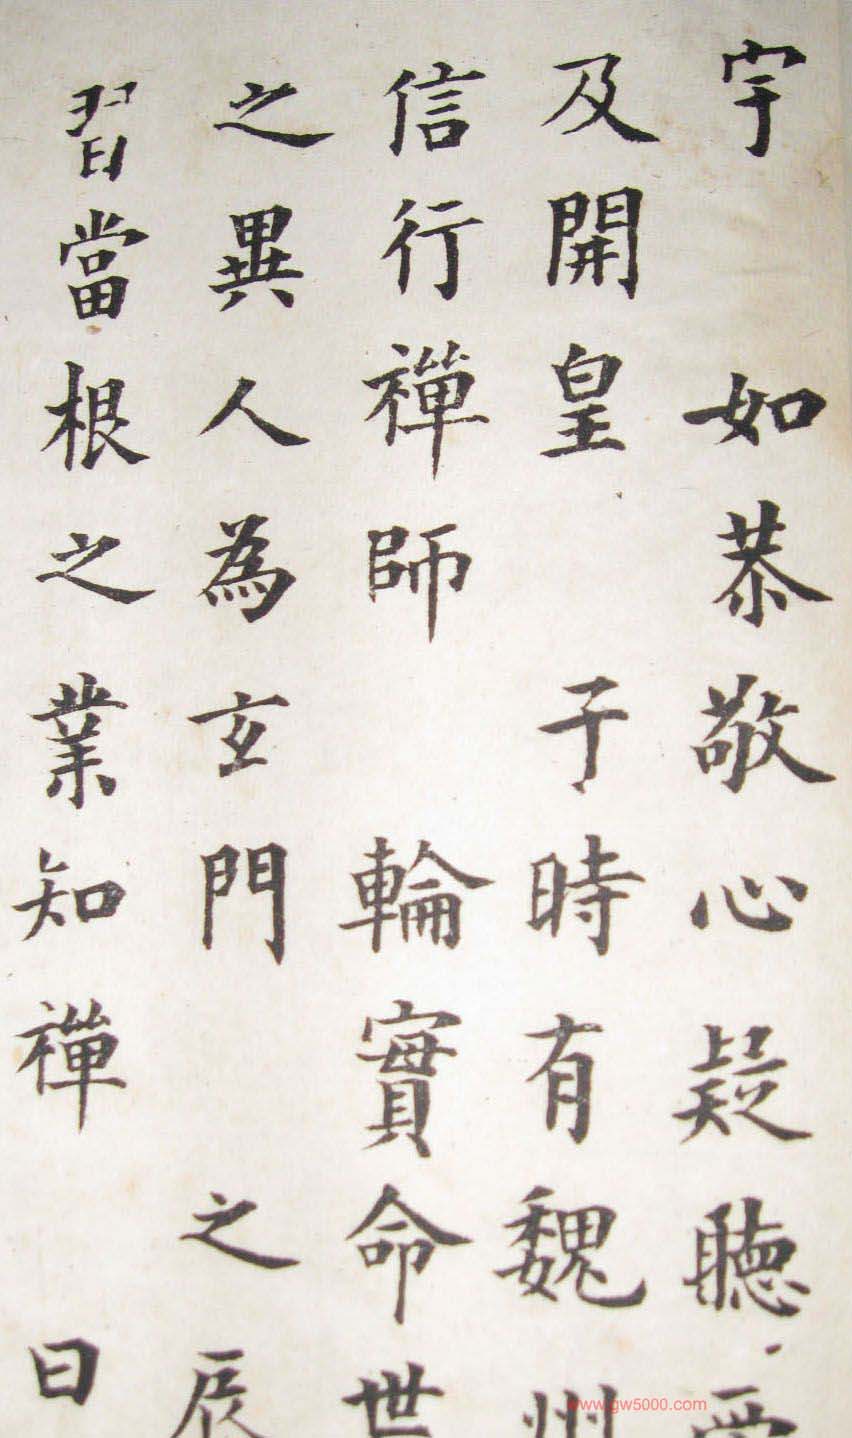 宇 如恭敬心疑聽受
及開皇 于時有魏州
信行禪師 輪實命世
之異人為玄門 之辰
習當根之業知禪 日
www.gw5000.com